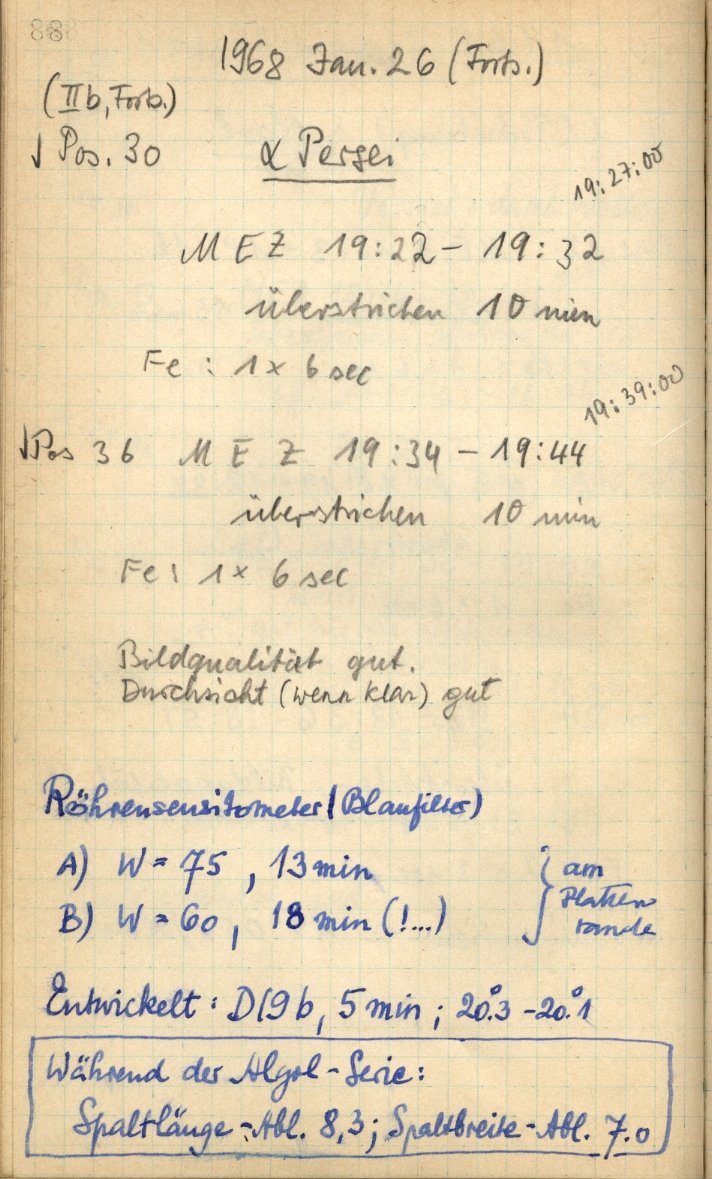 88
1968 Jan. 26 (Forts.)
(IIb, Forts.)
√ Pos. 30 α Persei
19:27:00
MEZ 19:22 – 19:32
überstrichen 10 min
Fe : 1 x 6 sec
19:39:00
√ Pos 36 MEZ 19:34 – 19:44
überstrichen 10 min
Fe : 1 x 6 sec
Bildqualität gut.
Durchsicht (wenn klar) gut
Röhrensensitometer (Blaufilter)
A) W = 75 , 13 min
B) W = 60 , 18 min (!...)
} am
Platten
rande
Entwickelt : D19b, 5 min ; 20°.3 – 20°.1
Während der Algol-Serie :
Spaltlänge-Abl. 8,3 ; Spaltbreite-Abl. 7.0